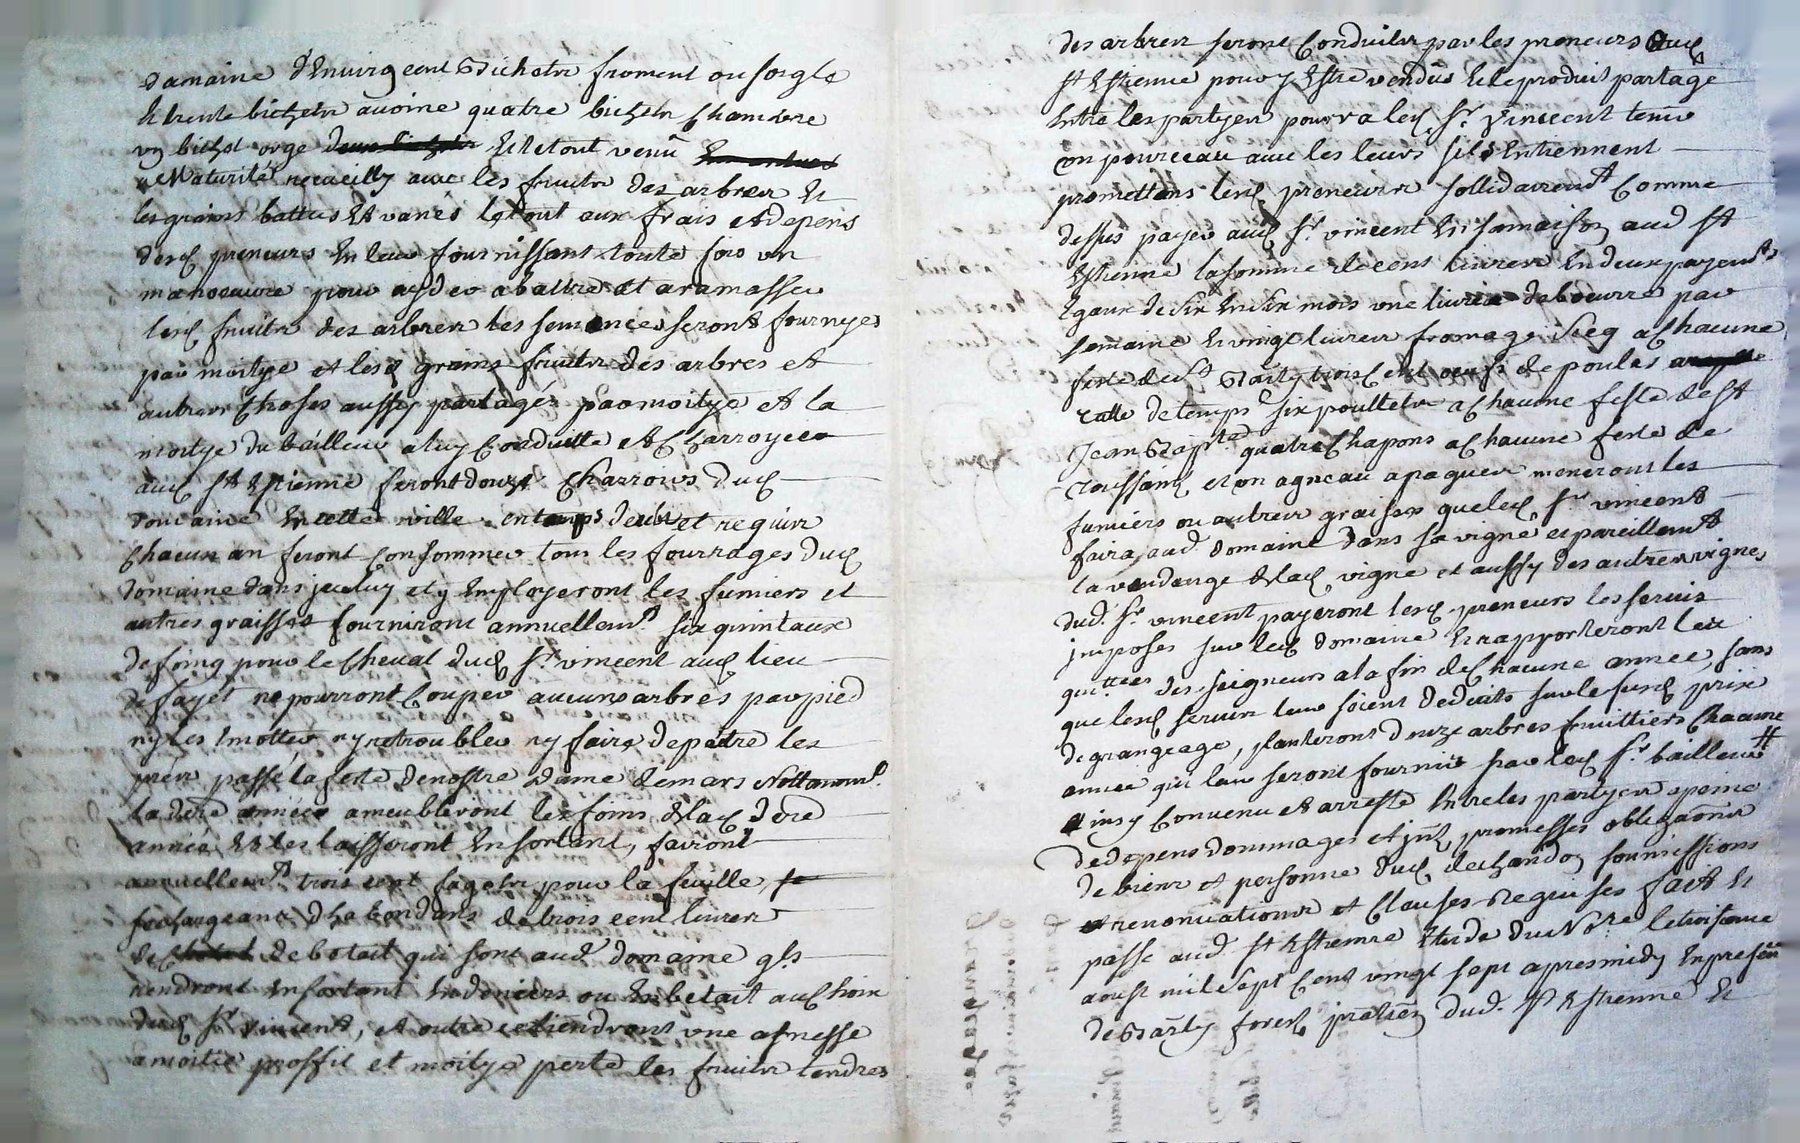 damaine d'Enuirg cent Bichetz froment ou soigle
Et trente bichetz auoine quatre bichetz chamvre
vn bichet orge Et le tout venû
a Maturité recueilly auec les fruitz des arbrez Et
les grains battus Et vanés le tout aux frais et depens
desd preneurs En leur fournissant toute fois vn
manoeuure pour ayder abattre et aramasser
lesd fruitz des arbrez les semences seront fournyes
par moitye et lesd grains fruitz des arbres et
autres Choses aussy partagés par moitye et la
moitye du bailleur a luy Conduitte et Charroyee
aud St Estienne feront douze Charrois dud
domaine En cette ville en temps deub et requis
Chacun an feront Consommer tous les fourrages dud
domaine dans jceluy et y Employeront les fumiers et
autres graisses fourniront annuellemt six quintaux
de foing pour le Cheval dud Sr vincent aud lieu
de fayet ne pourront Couper aucuns arbres par pied
ny les Emotter ny retroubler ny faire depaitre les
prés passé la feste de nostre dame de mars Nottamt
la dere année ameubleront les foins de lad dere
année Et les laisseront En sortant, fairont
annuellemt trois cent fagetz pour la feuille
se chargeant de la somme de trois cent livrez
de betail qui sont aud domaine qls
rendront En sortant En deniers ou En betail au Choix
dud Sr vincent, et outre ce tiendront vne asnesse
a moitié proffit et moitye perte les fruitz tendres
des arbrez seront Conduitz par les preneurs aud
St Estienne pour y Estre vendus Et le produit partagé
Entre les partyes pourra led Sr vincent tenir
vn pourceau auec les leurs sils En tiennent
promettans lesd preneurs sollidairemt Comme
dessus payer aud Sr vincent En sa maison aud St
Estienne la somme de cent livrez En deux payemts
Egaux de six En six mois vne livre de beurre par
semaine Et vingt livrez fromage secq a Chacune
feste de St Barthy trois Cent oeufs de poules a
ratte de temps six poulletz a Chacune feste de St
Jean Bapte quatre Chapons a Chacune feste de
Toussaint et vn agneau a paques meneront les
fumiers ou autres graisses que led Sr vincent
faira aud domaine dans sa vigne et pareillemt
la vendange de lad vigne et aussy des autres vignes
dud. Sr vincent payeront lesd preneurs les servis
jmposes sur led domaine Et rapporteront les
quittces des seigneurs a la fin de Chacune année, sans
que lesd servis leur soient deduits sur le susd prix
de grangeage, planteront douze arbres fruittiers Chacune
année qui leur seront fournis par led Sr bailleur #
ainsy Convenu et arresté Entre les partyes a peine
de depens dommages et jnts promesses obligaons
de biens et personne dud dechandon soumissions
et renonciations et Clauses Requises fait Et
passé aud. St Estienne Etude du Nore le troisieme
aoust mil sept Cent vingt sept apresmidy En presence
de Barthy forest praticien dud. St Estienne Et